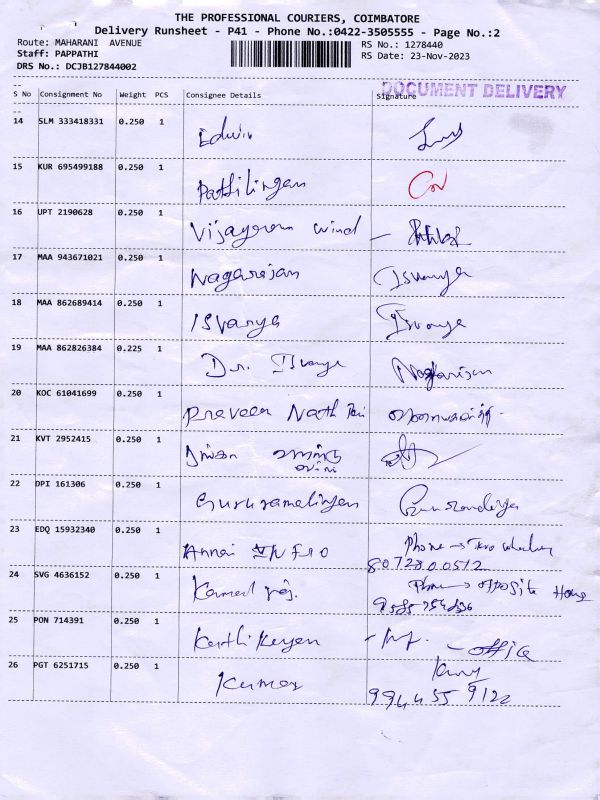 THE PROFESSIONAL COURIERS, COIMBATORE
Delivery Runsheet - P41 - Phone No.:0422-3505555 - Page No.:2
Route: MAHARANI AVENUE
RS No.: 1278440
Staff: PAPPATHI
RS Date: 23-Nov-2023
DRS No.: DCJB127844002
DOCUMENT DELIVERY
S No Consignment No Weight PCS Consignee Details Signature
14 SLM 333418331 0.250 1 Edwin
15 KUR 695499188 0.250 1 Pathilingam
16 UPT 2190628 0.250 1 Vijayaram Wind
17 MAA 943671021 0.250 1 Nagarajan Isvarya
18 MAA 862689414 0.250 1 Isvarya Isvarya
19 MAA 862826384 0.225 1 Dr. Isvarya Nagarajan
20 KOC 61041699 0.250 1 Praveen Nath
21 KVT 2952415 0.250 1
22 DPI 161306 0.250 1 Gururamalingam
23 EDQ 15932340 0.250 1 Annai INFO Phone → Two wheeler
8072800512
24 SVG 4636152 0.250 1 Kamal raj. Phone → opposite Home
25 PON 714391 0.250 1 Karthikeyan - office
26 PGT 6251715 0.250 1 Kumar
994455 9122